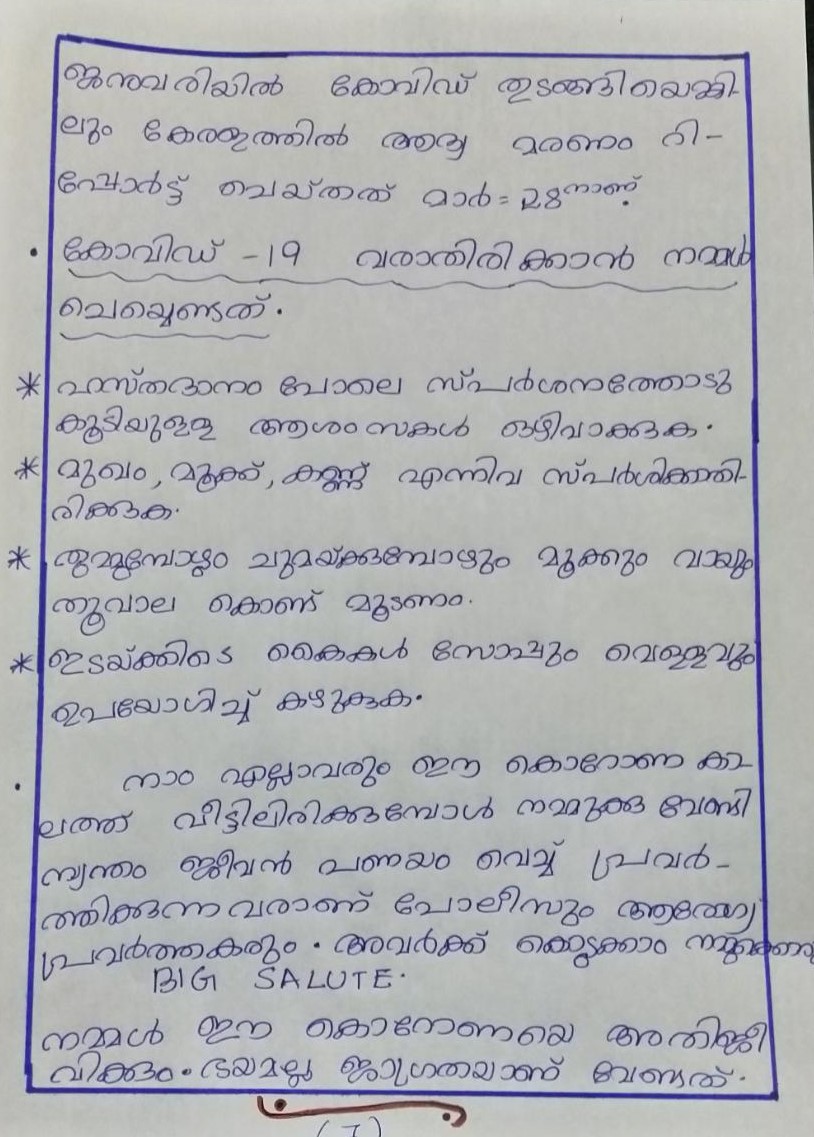 ജനുവരിയിൽ കോവിഡ് തുടങ്ങിയെങ്കി-
ലും കേരളത്തിൽ ആദ്യ മരണം റി-
പ്പോർട്ട് ചെയ്തത് മാർ=28നാണ്.
• കോവിഡ് -19 വരാതിരിക്കാൻ നമ്മൾ
ചെയ്യെണ്ടത്.
* ഹസ്തദാനം പോലെ സ്പർശനത്തോടു
കൂടിയുളള ആശംസകൾ ഒഴിവാക്കുക.
* മുഖം, മൂക്ക്, കണ്ണ് എന്നിവ സ്പർശിക്കാതി-
രിക്കുക.
* തുമ്മുമ്പോഴും ചുമയ്ക്കുമ്പോഴും മൂക്കും വായും
തൂവാല കൊണ്ട് മൂടണം.
* ഇടയ്ക്കിടെ കൈകൾ സോപ്പും വെള്ളവും
ഉപയോഗിച്ച് കഴുകുക.
• നാം എല്ലാവരും ഈ കൊറോണ കാ-
ലത്ത് വീട്ടിലിരിക്കുമ്പോൾ നമ്മുക്കു വേണ്ടി
സ്വന്തം ജീവൻ പണയം വെച്ച് പ്രവർ-
ത്തിക്കുന്നവരാണ് പോലീസും ആരോഗ്യ
പ്രവർത്തകരും. അവർക്ക് കൊടുക്കാം
BIG SALUTE.
നമ്മൾ ഈ കൊറോണയെ അതിജീ
വിക്കും. ഭയമല്ല ജാഗ്രതയാണ് വേണ്ടത്.
(7)